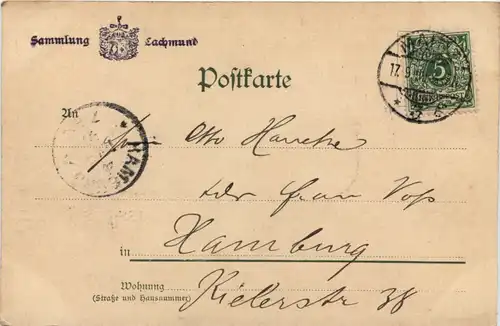 Sammlung Lachmund
Postkarte
An
Otto
frau Voß
in Hamburg
Wohnung
(Straße und Hausnummer)
Kielerstr 38
5
HAMB